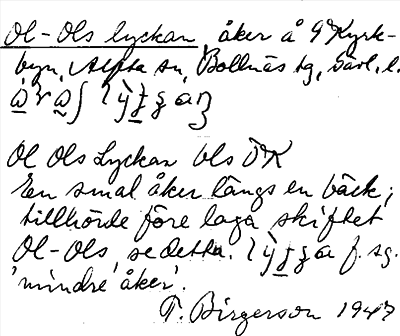 Ol-Ols lyckan, åker å 9°Kyrk-
byn, Alfta sn, Bollnäs tg, Gävl. l.
Ol Ols Lyckan bls
En smal åker längs en bäck;
tillhörde före laga skiftet
Ol-Ols, se detta. f. sg.
'mindre åker'.
T. Birgerson 1947